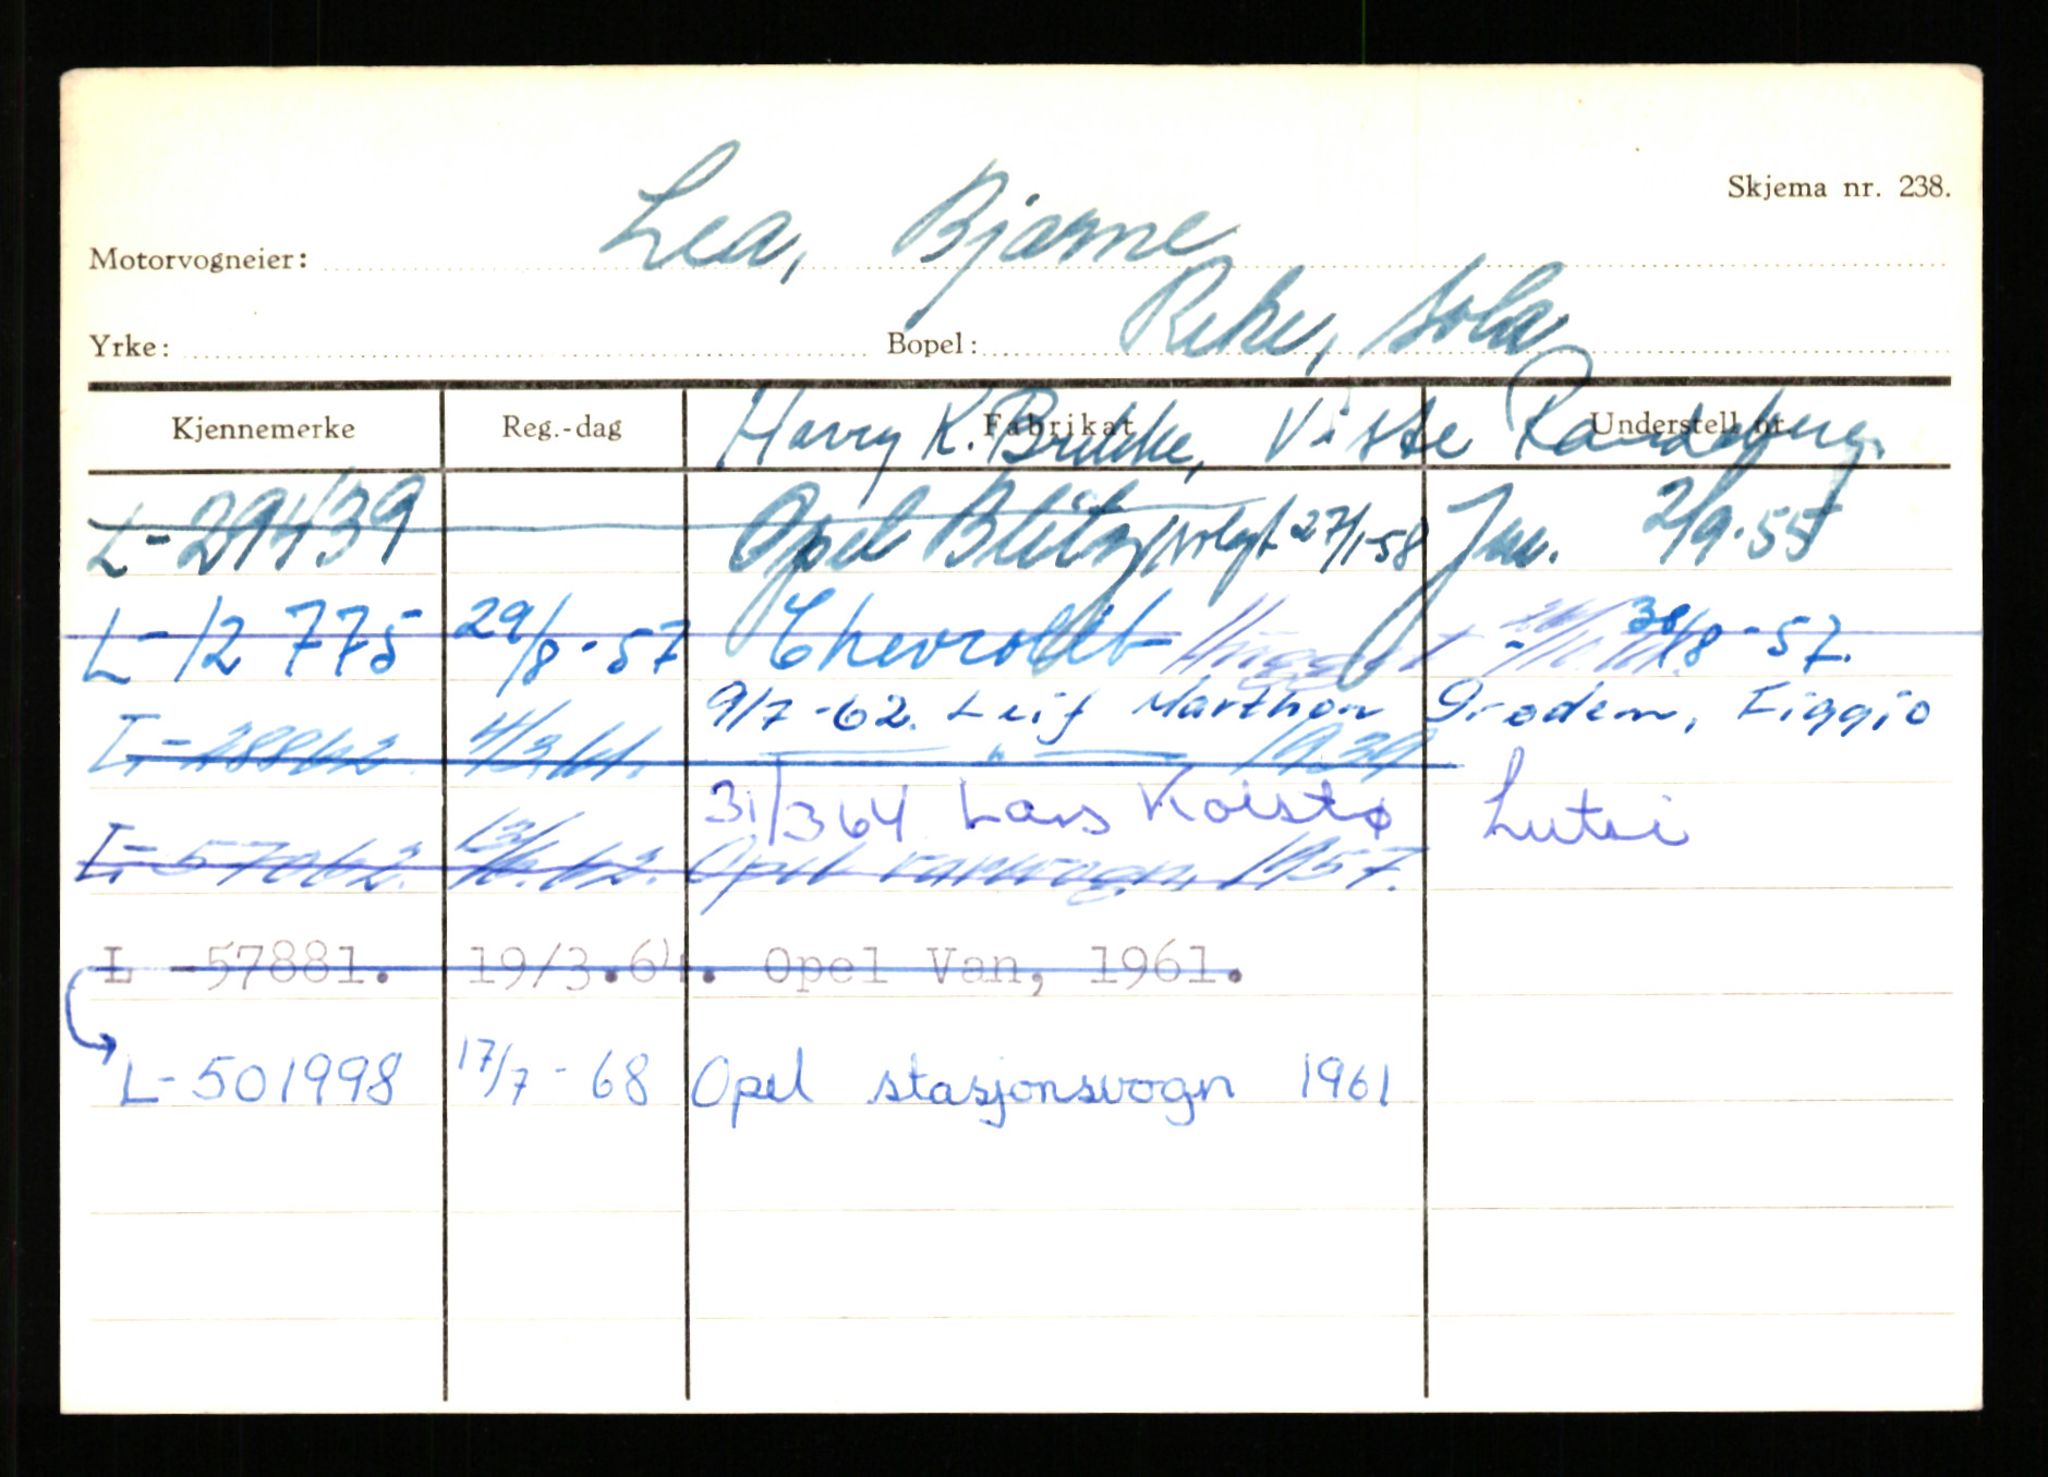 Skjema nr. 238.
Motorvogneier: Lea, Bjarne
Yrke: Bopel: Reke, Sola
Kjennemerke Reg.-dag Fabrikat Understell nr.
Harry K. Viste Randaberg.
L-29439 Opel Blitz solgt 27/1-58 2/9-55
L-12 775 29/8-57 Chevrolet 30/8-57.
9/7-62. Leif Marthon Grødem, Figgjo
L-28862 4/3.61. — " — 1939
31/3 64 Lars Lutsi
L-57062. 13/6.62. Opel varevogn, 1957.
L -57881. 19/3.64. Opel Van, 1961.
L-501998 17/7-68 Opel stasjonsvogn 1961